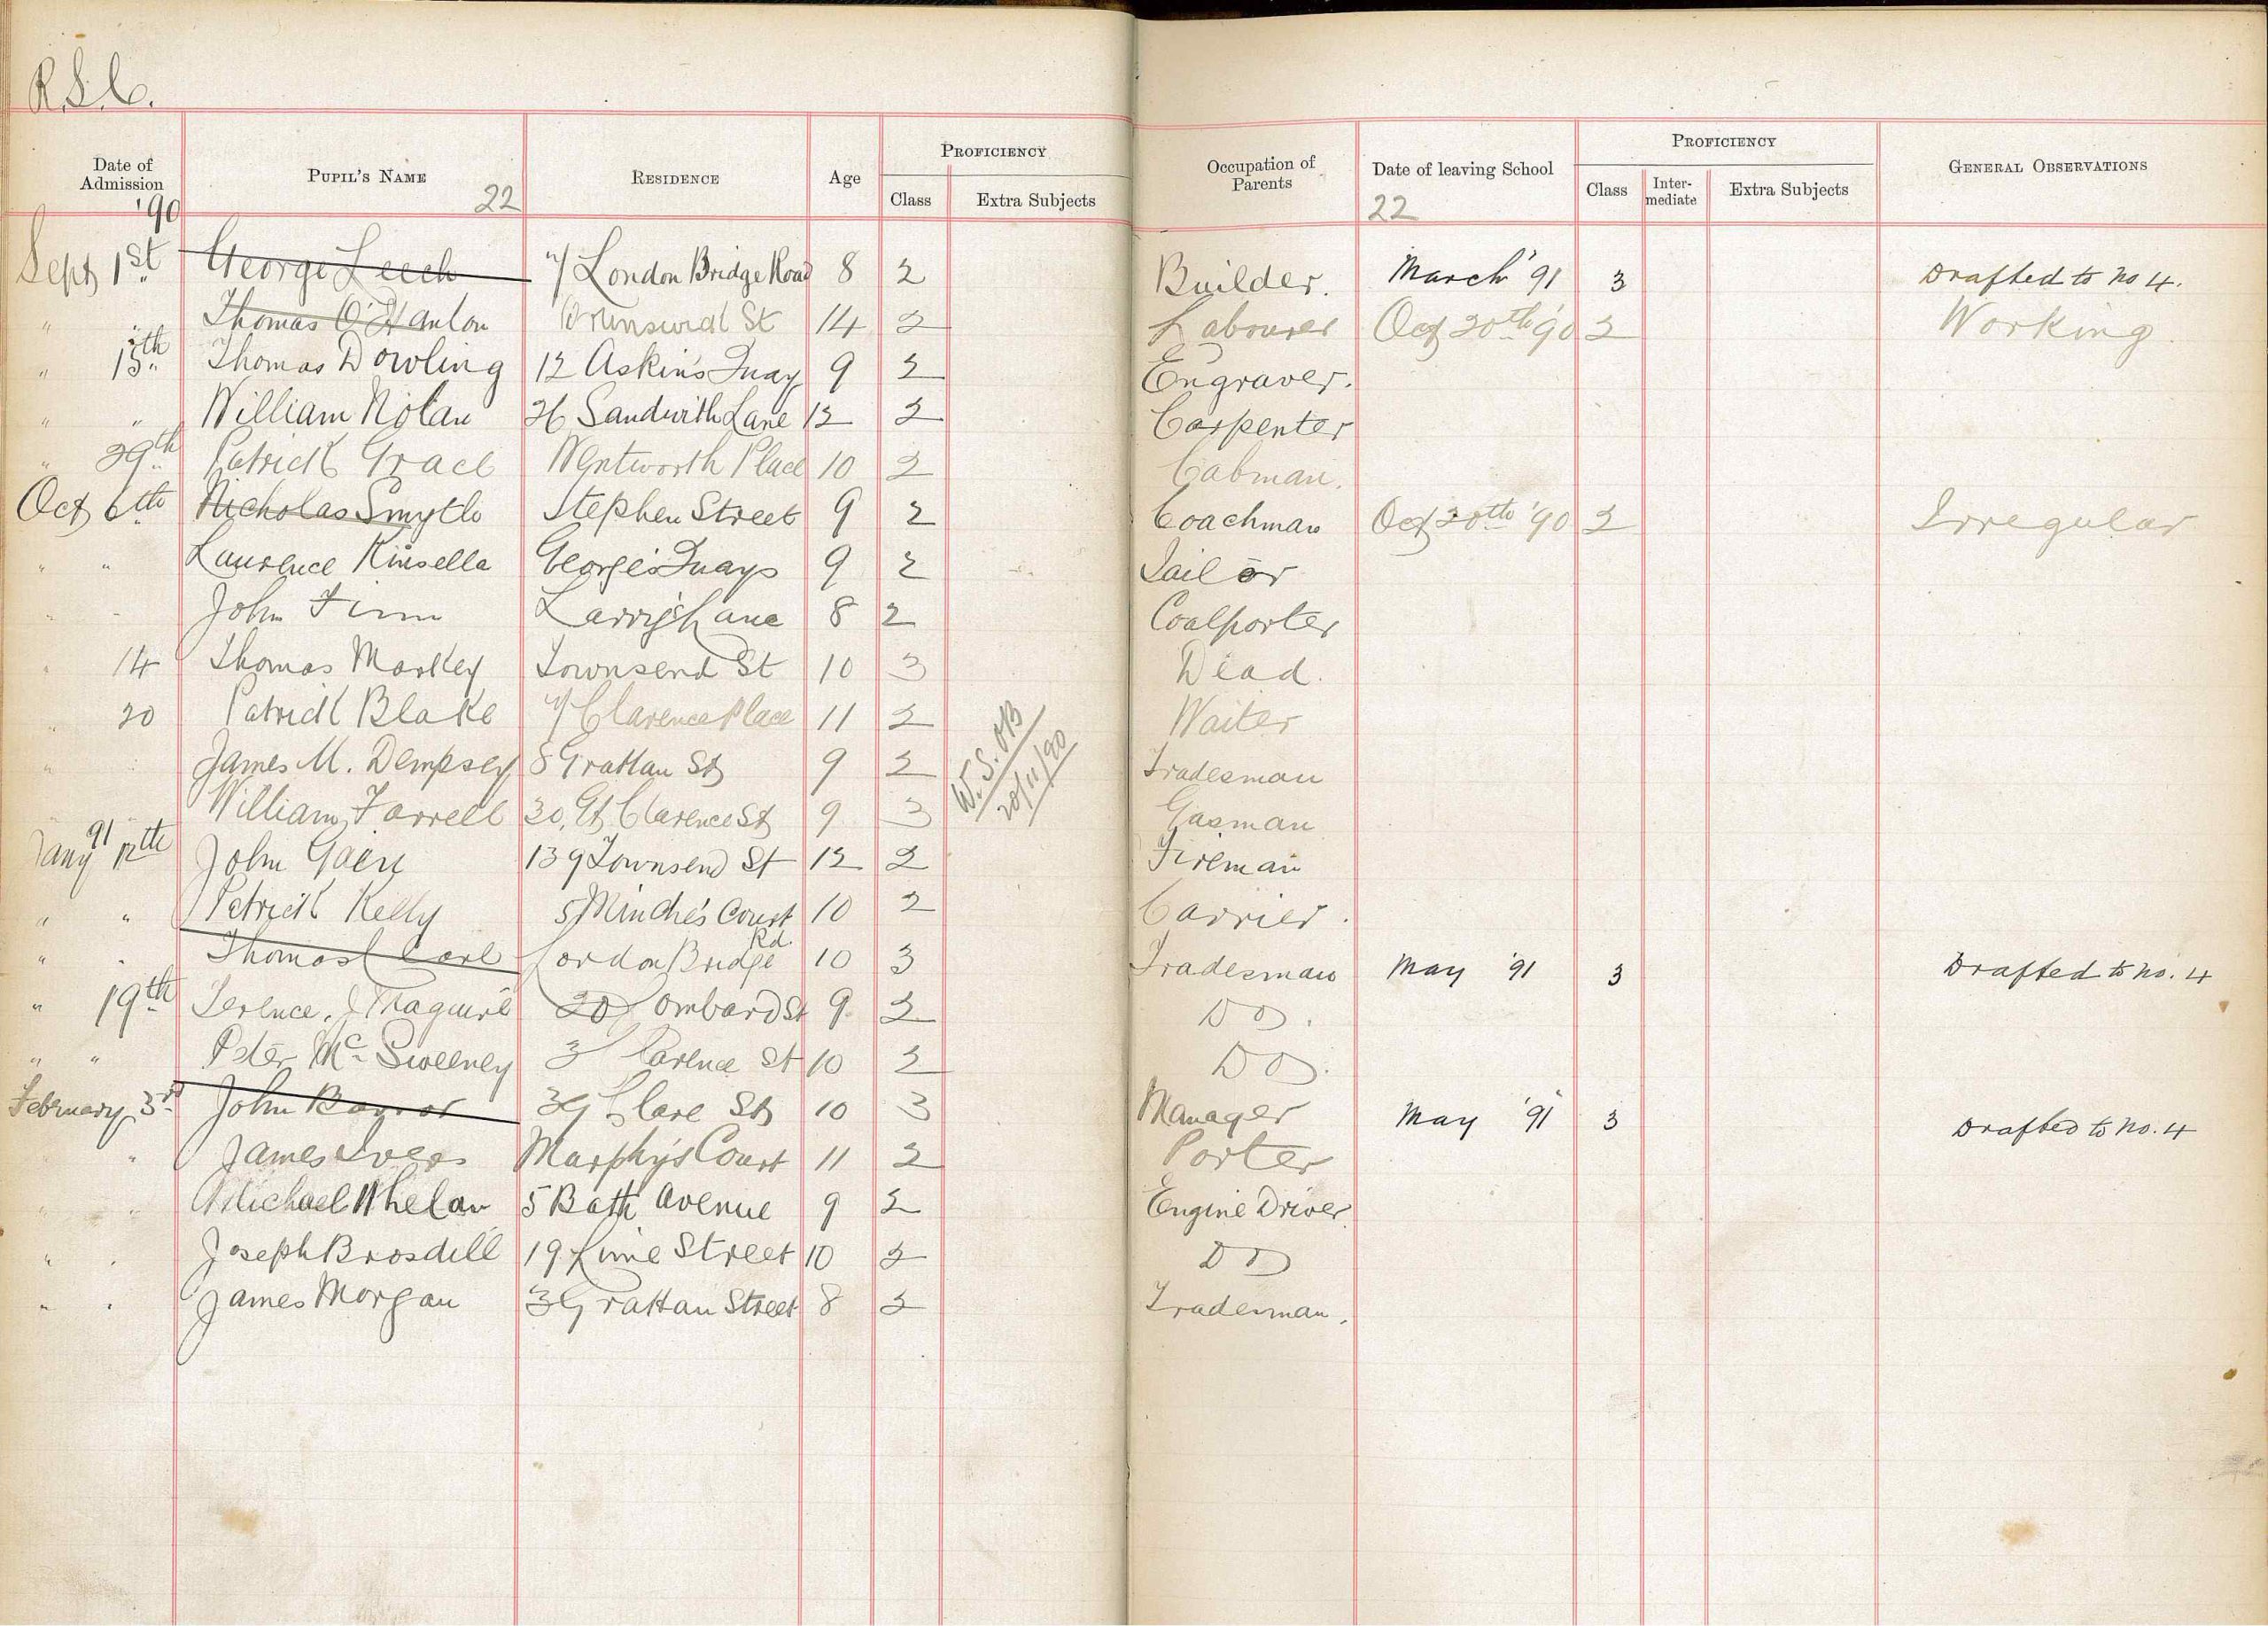 R.S.C.
Date of Admission PUPIL'S NAME 22 RESIDENCE Age PROFICIENCY Class Extra Subjects Occupation of Parents Date of leaving School 22 PROFICIENCY Class Inter-mediate Extra Subjects GENERAL OBSERVATIONS
'90
Sept 1st George Leech 7 London Bridge Road 8 2 Builder. March '91 3 Drafted to no 4.
" " Thomas O'Hanlon Brunswick St 14 2 Labourer Oct 20th '90 2 Working.
" 15th Thomas Dowling 12 Askin's Quay 9 2 Engraver.
" " William Nolan 26 Sandwith Lane 12 2 Carpenter
" 29th Patrick Grace Wentworth Place 10 2 Cabman.
Oct 6th Nicholas Smyth Stephen Street 9 2 Coachman Oct 20th '90 2 Irregular
" " Laurence Kinsella George's Quays 9 2 Sailor
" " John Finn Lane 8 2 Coalporter
" 14 Thomas Markey Townsend St 10 3 Dead.
" 20 Patrick Blake 7 Clarence Place 11 2 Waiter
" " James M. Dempsey 8 Grattan St 9 2 Tradesman
W.S. OB
20/11/90
William Farrell 30, Gt Clarence St 9 3 Gasman
Jany 91 12th John 139 Townsend St 12 2 Fireman
" " Patrick Kelly 5 Court 10 2 Carrier.
" " Thomas Carl London Bridge Rd. 10 3 Tradesman May '91 3 Drafted to no. 4
" 19th Terence J Maguire 20 Lombard St 9 2 Do.
" " Peter McSweeney 3 Clarence St 10 2 Do.
February 3rd John 39 Clare St 10 3 Manager May '91 3 Drafted to no. 4
" James Ivers Murphy's Court 11 2 Porter
" " Michael Whelan 5 Bath Avenue 9 2 Engine Driver
" " Joseph Brosdell 19 Lime Street 10 2 Do
" " James Morgan 3 Grattan Street 8 2 Tradesman.